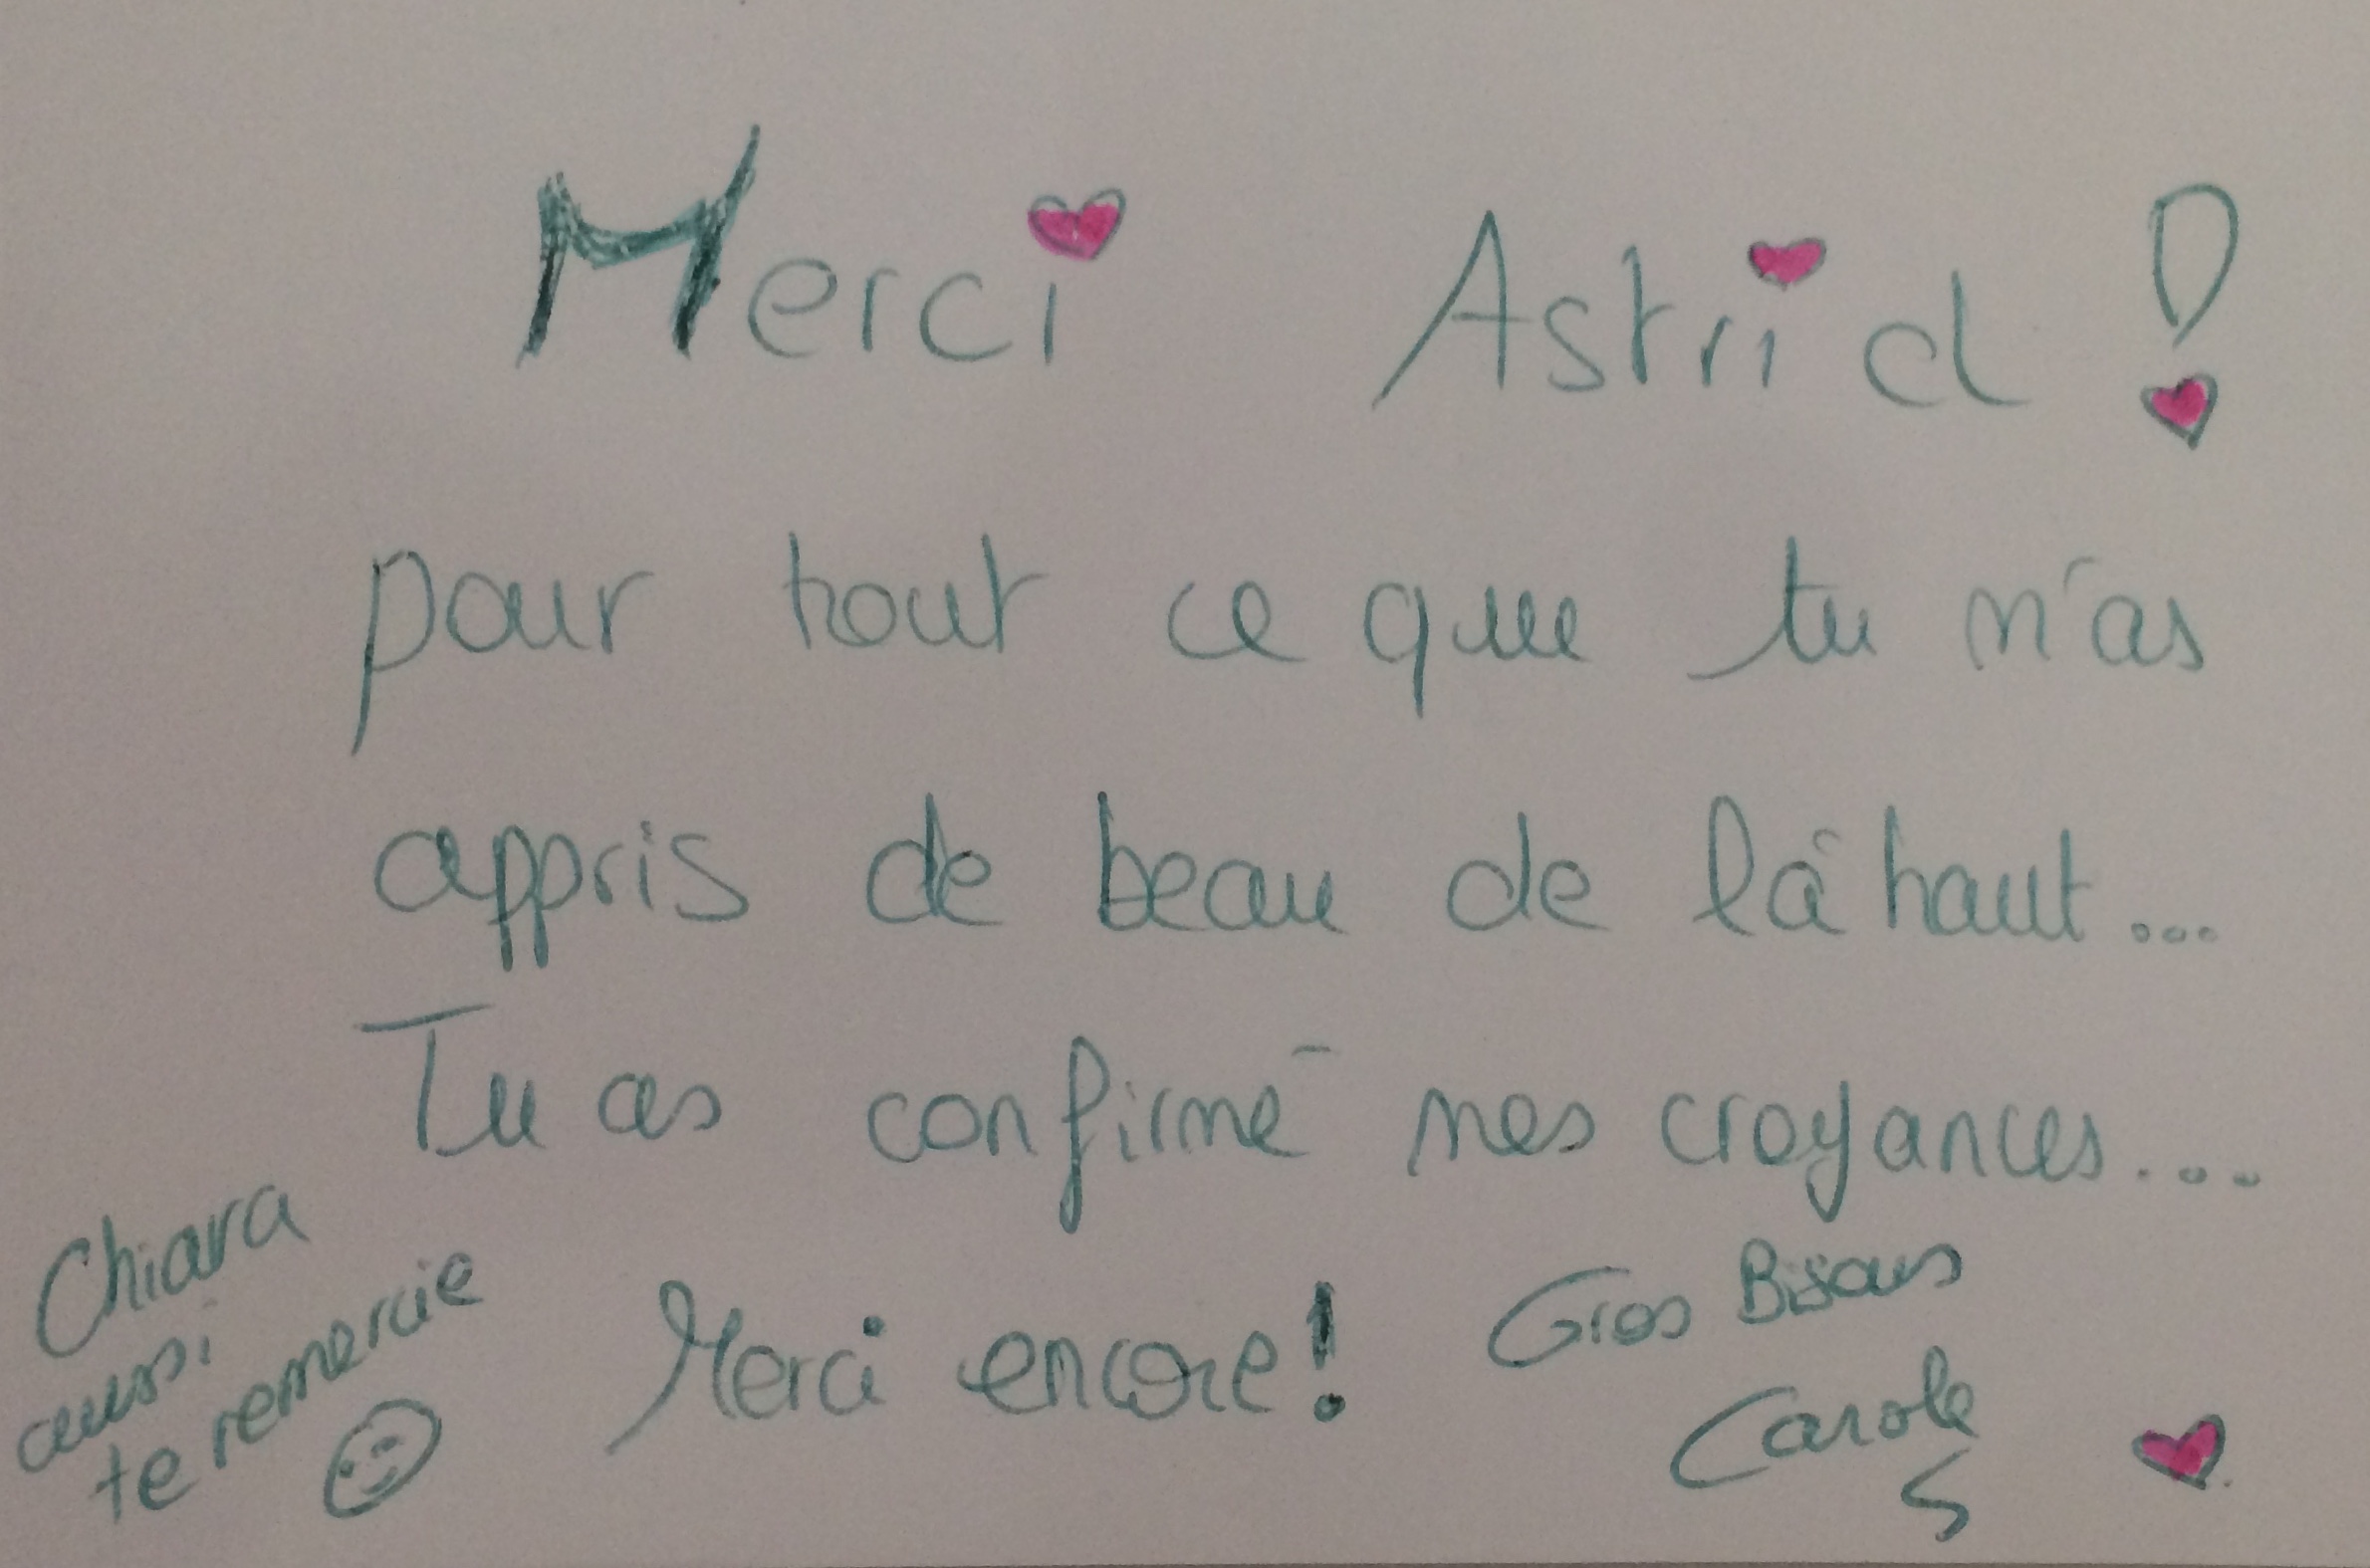 Merci Astrid !
pour tout ce que tu m'as
appris de beau de là haut...
Tu as confirmé mes croyances....
Merci encore!
Gros Bisous
Carole
Chiara
aussi
te remercie